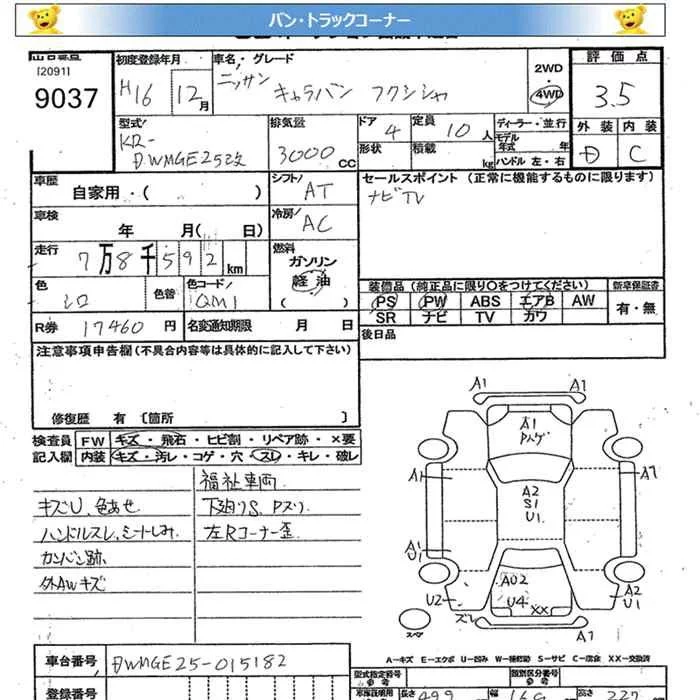 バン・トラックコーナー
[2091]
9037
初度登録年月
H16 12月
車名・グレード
ニッサン キャラバン フクシシャ
2WD
4WD
評価点
3.5
型式
KR-
DWMGE25改
排気量
3000 CC
ドア 4
定員 10 人
ディーラー・並行
形状
積載 kg
モデル年式 年
ハンドル 左・右
外装 内装
D C
車歴
自家用・( )
シフト AT
セールスポイント (正常に機能するものに限ります)
ナビTV
車検
年 月( 日)
冷房 AC
走行
7万8千592km
燃料
ガソリン
軽油
( )
色 シロ
色替
色コード QM1
装備品 (純正品に限り○をつけてください)
新車保証書
PS PW ABS エアB AW
SR ナビ TV カワ
有・無
R券 17460 円
名変通知期限 月 日
後日品
注意事項申告欄 (不具合内容等は具体的に記入して下さい)
修復歴 有 〔箇所 〕
検査員記入欄
FW キズ・飛石・ヒビ割・リペア跡・×要
内装 キズ・汚レ・コゲ・穴・スレ・キレ・破レ
福祉車両
キズU、色あせ
下廻りS、Pズリ
ハンドルスレ、シートしみ
左Rコーナー歪
カンバン跡
外AWキズ
A1 A1
A1
Pハゲ
A1 A2 S1 U1 A1
A1
U1
U2 ズレ
AU2
U4
XX
A2
U1
スペア
A1
A-キズ E-エクボ U-凹み W-補修跡 S-サビ C-腐食 XX-交換済
車台番号 DWMGE25-015182
登録番号
型式指定番号
類別区分番号
長さ 499
幅 169
高さ 227